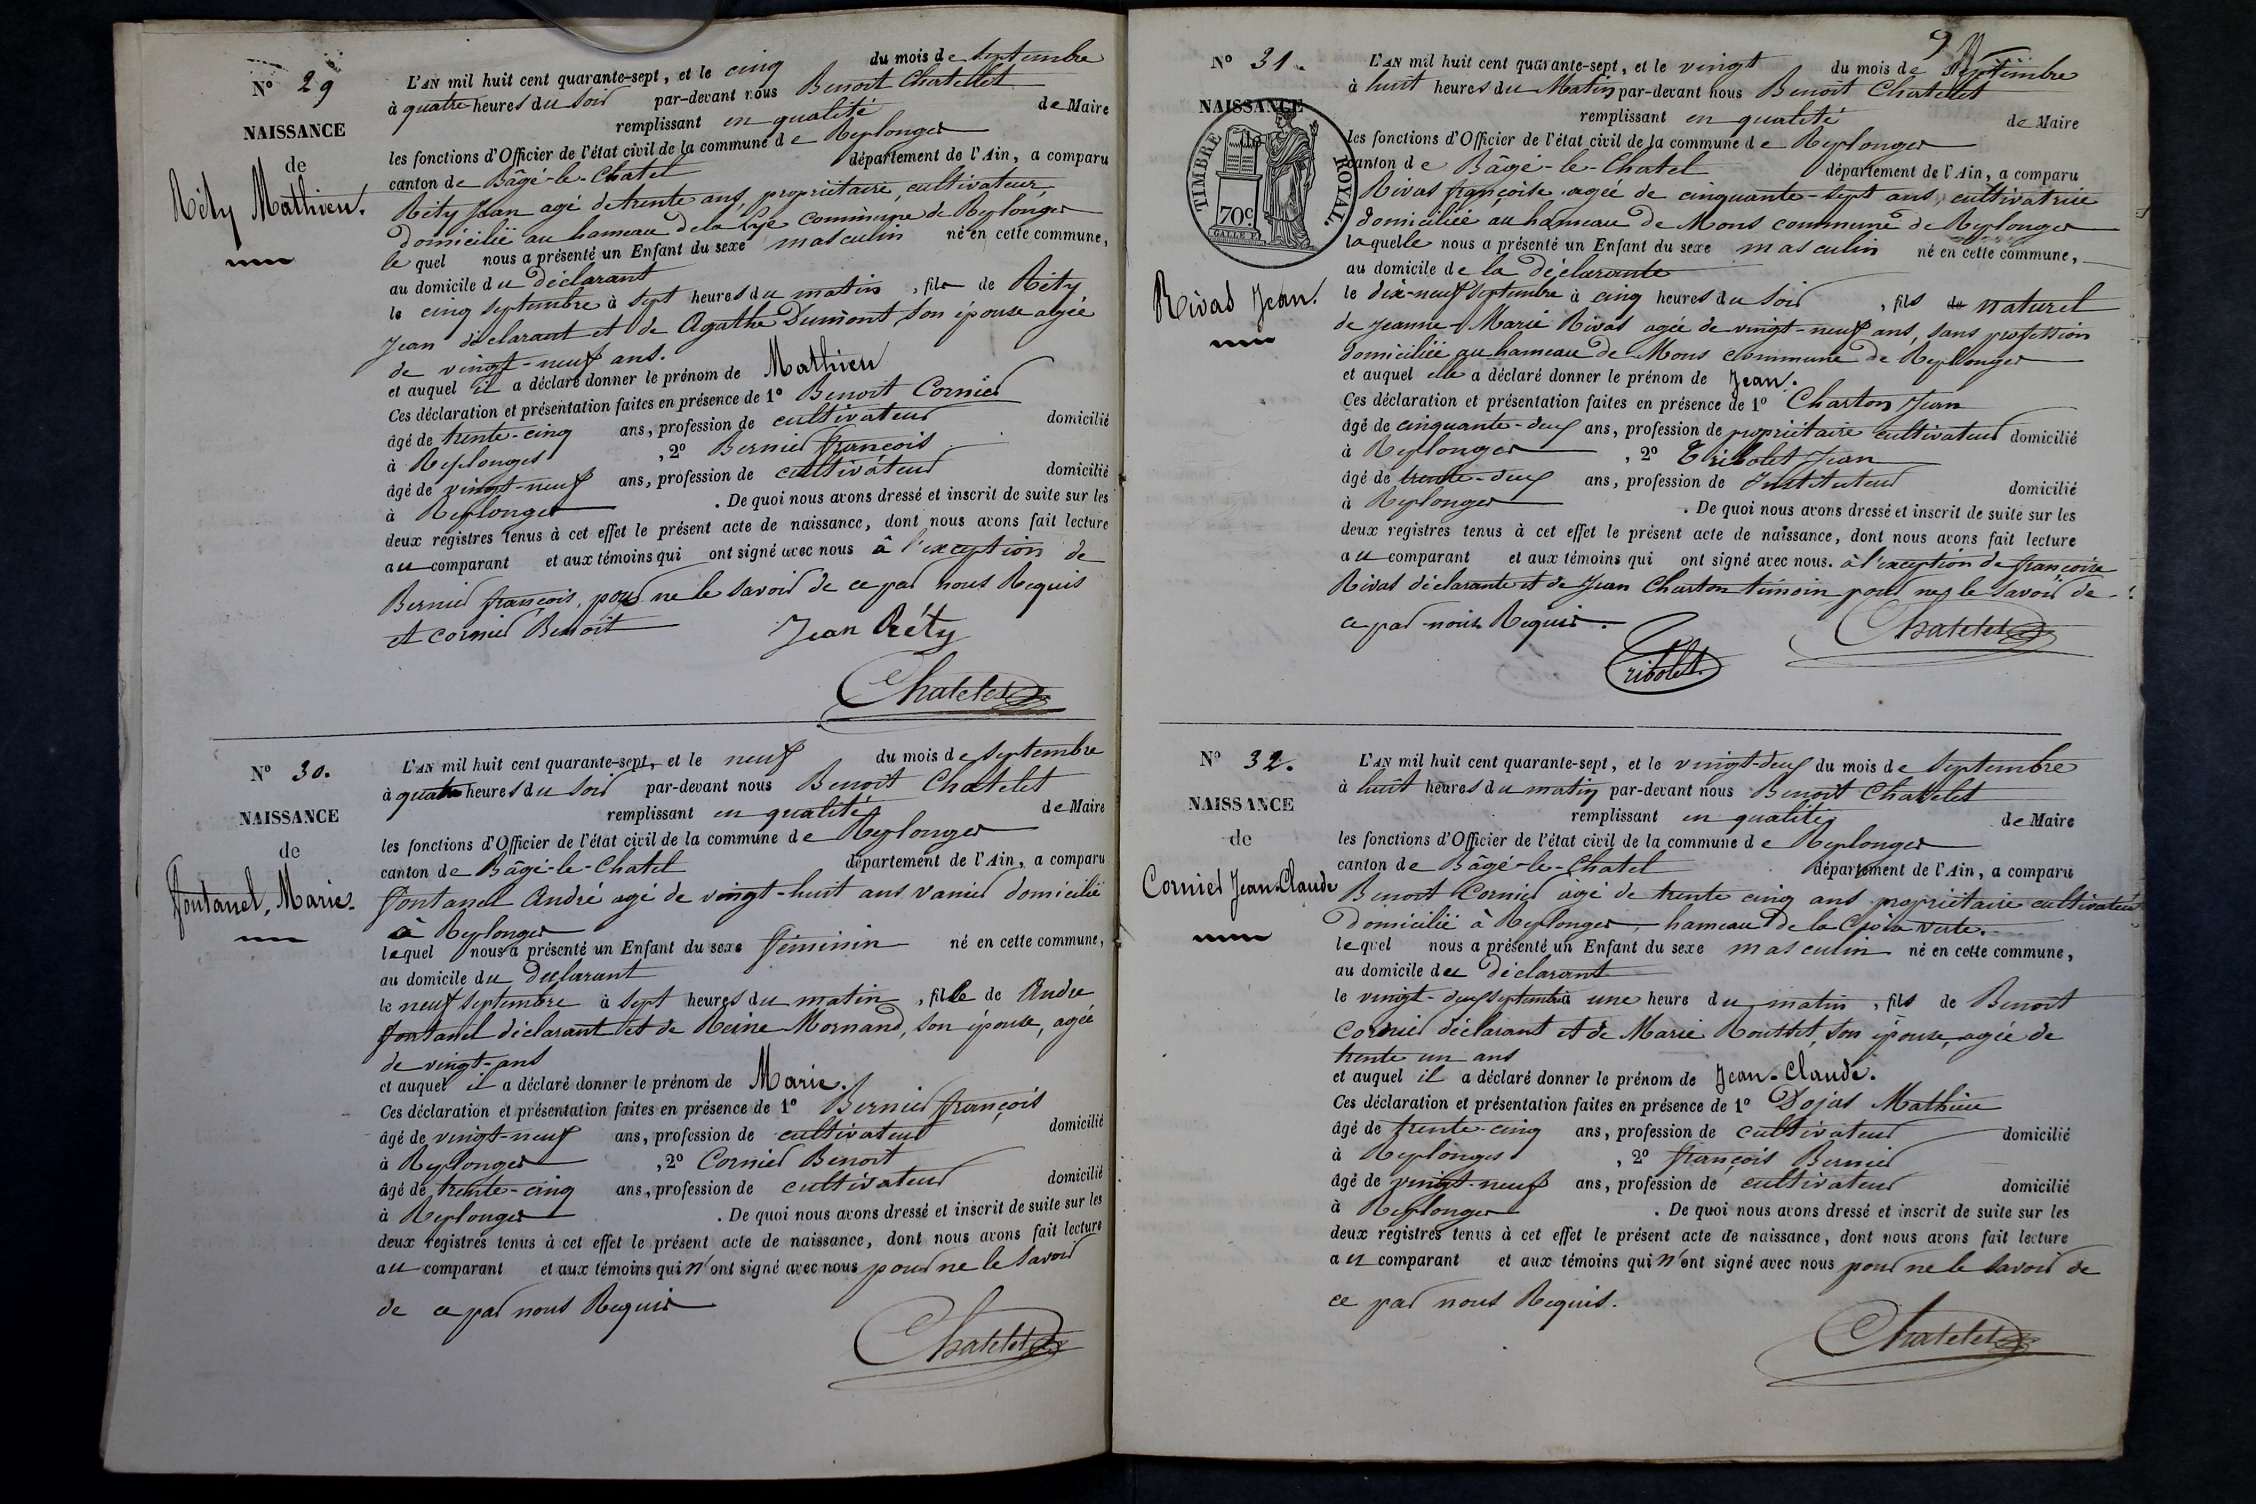 N° 29
NAISSANCE
de
Réty Mathieu.
L'AN mil huit cent quarante-sept, et le cinq du mois de septembre
à quatre heures du soir par-devant nous Benoit Chatelet
remplissant en qualité de Maire
les fonctions d'Officier de l'état civil de la commune de Replonges
canton de Bâgé-le-Chatel département de l'Ain, a comparu
Réty Jean agé de trente ans, propriétaire, cultivateur,
domicilié au hameau de la commune de Replonges
le quel nous a présenté un Enfant du sexe masculin né en cette commune,
au domicile du déclarant
le cinq septembre à sept heures du matin, fils de Réty
Jean déclarant et de Agathe Dumont, son épouse agée
de vingt-neuf ans.
et auquel il a déclaré donner le prénom de Mathieu
Ces déclaration et présentation faites en présence de 1° Benoit Cornier
âgé de trente-cinq ans, profession de cultivateur domicilié
à Replonges, 2° Bernier françois
âgé de vingt-neuf ans, profession de cultivateur domicilié
à Replonges. De quoi nous avons dressé et inscrit de suite sur les
deux registres tenus à cet effet le présent acte de naissance, dont nous avons fait lecture
au comparant et aux témoins qui ont signé avec nous à l'exception de
Bernier françois, pour ne le savoir de ce par nous Requis
et cornier Benoit
Jean Réty
Chatelet
N° 30.
NAISSANCE
de
fontanel, Marie.
L'AN mil huit cent quarante-sept, et le neuf du mois de septembre
à quatre heures du soir par-devant nous Benoit Chatelet
remplissant en qualité de Maire
les fonctions d'Officier de l'état civil de la commune de Replonges
canton de Bâgé-le-Chatel département de l'Ain, a comparu
fontanel André agé de vingt-huit ans vanier domicilié
à Replonges
lequel nous a présenté un Enfant du sexe féminin né en cette commune,
au domicile du déclarant
le neuf septembre à sept heures du matin, fille de André
fontanel déclarant et de Reine Mornand, son épouse, agée
de vingt-ans
et auquel il a déclaré donner le prénom de Marie.
Ces déclaration et présentation faites en présence de 1° Bernier françois
âgé de vingt-neuf ans, profession de cultivateur domicilié
à Replonges, 2° Cornier Benoit
âgé de trente-cinq ans, profession de cultivateur domicilié
à Replonges. De quoi nous avons dressé et inscrit de suite sur les
deux registres tenus à cet effet le présent acte de naissance, dont nous avons fait lecture
au comparant et aux témoins qui n'ont signé avec nous pour ne le savoir
de ce par nous Requis
Chatelet
9
N° 31.
NAISSANCE
TIMBRE ROYAL
70c
Rivas Jean.
L'AN mil huit cent quarante-sept, et le vingt du mois de septembre
à huit heures du Matin par-devant nous Benoit Chatelet
remplissant en qualité de Maire
les fonctions d'Officier de l'état civil de la commune de Replonges
canton de Bâgé-le-Chatel département de l'Ain, a comparu
Rivas françoise agée de cinquante-sept ans cultivatrice
domiciliée au hameau de Mons commune de Replonges
laquelle nous a présenté un Enfant du sexe masculin né en cette commune,
au domicile de la déclarante
le dix-neuf septembre à cinq heures du soir, fils de naturel
de Jeanne-Marie Rivas agée de vingt-neuf ans, sans profession
domiciliée au hameau de Mons commune de Replonges
et auquel elle a déclaré donner le prénom de Jean.
Ces déclaration et présentation faites en présence de 1° Charton Jean
âgé de cinquante-deux ans, profession de propriétaire cultivateur domicilié
à Replonges, 2° Tribolet Jean
âgé de trente-deux ans, profession de Instituteur domicilié
à Replonges. De quoi nous avons dressé et inscrit de suite sur les
deux registres tenus à cet effet le présent acte de naissance, dont nous avons fait lecture
au comparant et aux témoins qui ont signé avec nous. à l'exception de françoise
Rivas déclarante et de Jean Charton témoin pour ne le savoir de
ce par nous Requis.
Tribolet
Chatelet
N° 32.
NAISSANCE
de
Cornier Jean-Claude
L'AN mil huit cent quarante-sept, et le vingt-deux du mois de septembre
à huit heures du matin par-devant nous Benoit Chatelet
remplissant en qualité de Maire
les fonctions d'Officier de l'état civil de la commune de Replonges
canton de Bâgé-le-Chatel département de l'Ain, a comparu
Benoit Cornier agé de trente cinq ans propriétaire cultivateur
domicilié à Replonges, hameau de la verte.
lequel nous a présenté un Enfant du sexe masculin né en cette commune,
au domicile du déclarant
le vingt-deux septembre à une heure du matin, fils de Benoit
Cornier déclarant et de Marie Rousset, son épouse, agée de
trente un ans
et auquel il a déclaré donner le prénom de Jean-Claude.
Ces déclaration et présentation faites en présence de 1° Dojat Mathieu
âgé de trente-cinq ans, profession de cultivateur domicilié
à Replonges, 2° françois Bernier
âgé de vingt-neuf ans, profession de cultivateur domicilié
à Replonges. De quoi nous avons dressé et inscrit de suite sur les
deux registres tenus à cet effet le présent acte de naissance, dont nous avons fait lecture
au comparant et aux témoins qui n'ont signé avec nous pour ne le savoir de
ce par nous Requis.
Chatelet